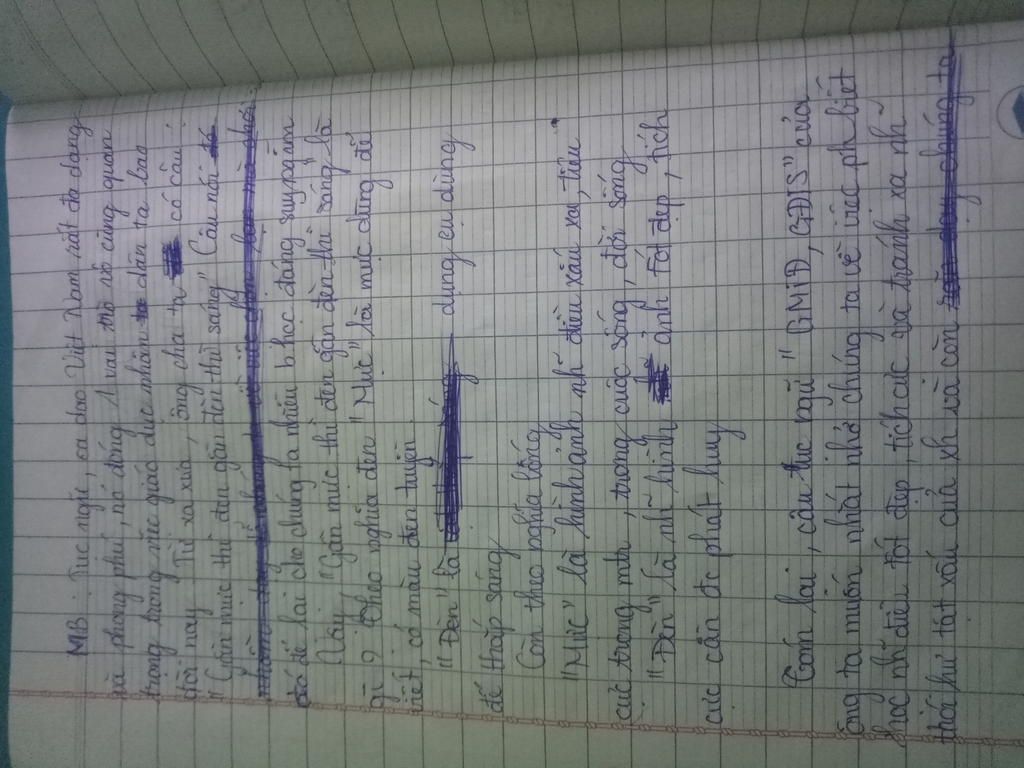 MB: Tục ngữ, ca dao Việt Nam rất đa dạng
và phong phú, nó đóng 1 vai trò vô cùng quan
trọng trong việc giáo dục nhân dân ta bao
đời nay. Từ xa xưa, ông cha ta có câu:
"Gần mực thì đen gần đèn thì sáng" Câu nói
đó để lại cho chúng ta nhiều b học đáng suy ngẫm
Vậy "Gần mực thì đen gần đèn thì sáng" là
gì? Theo nghĩa đen "Mực" là mực dùng để
viết, có màu đen tuyền.
"Đèn" là dụng cụ dùng
để thắp sáng
Còn theo nghĩa bóng
"Mực" là hình ảnh nh~ điều xấu xa, tiêu
cực trong mtr, trong cuộc sống, đời sống
"Đèn" là nh~ hình ảnh tốt đẹp, tích
cực cần đc phát huy
Tóm lại, câu tục ngữ "GMTĐ, GĐTS" của
ông ta muốn nhắc nhở chúng ta về việc ph biết
học nh~ điều tốt đẹp, tích cực và tránh xa nh~
thói hư tật xấu của xh và còn